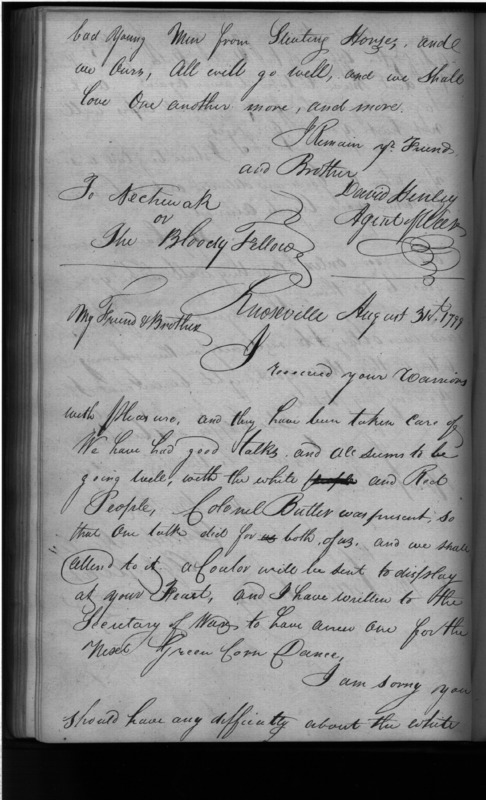 bad Young Men from Stealing Horses, and
we Ours, All will go well, and we Shall
Love One another more, and more.
I Remain yr Friend
and Brother
David Henley
Agent of War
To Nechewak
or
The Bloody Fellow
Knoxville August 31st. 1799
My Friend & Brother,
I
received your Warriors
with pleasure, and they have been taken care of
We have had good talks, and all seems to be
going well, with the white people and Red
People, Colonel Butler was present, so
that One talk did for us both of us. and we shall
attend to it, a Coulor will be sent to display
at your Feast, and I have written to the
Secretary of War to have a new one for the
Next Green Corn Dance,
I am sorry you
should have any difficulty about the white